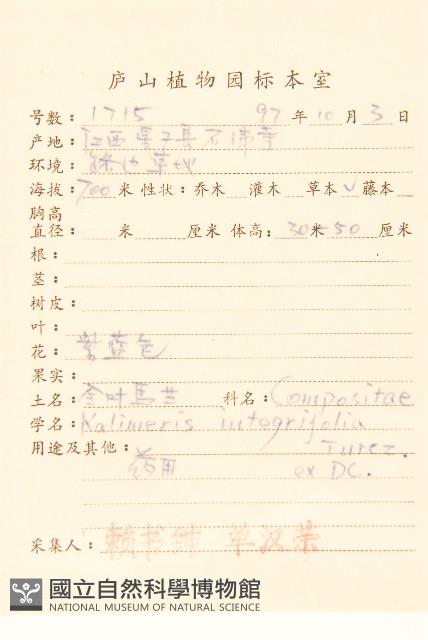 庐山植物园标本室
号数: 1715 97 年 10 月 3 日
产地: 江西星子县 寺
环境: 草地
海拔: 700 米 性状: 乔木 灌木 草本 √ 藤本
胸高
直径: 米 厘米 体高: 30 米 50 厘米
根:
茎:
树皮:
叶:
花: 紫蓝色
果实:
土名: 全叶馬兰 科名: Compositae
学名: Kalimeris integrifolia
用途及其他: Turcz.
药用 ex DC.
采集人: 赖书绅 单汉荣
國立自然科學博物館
NATIONAL MUSEUM OF NATURAL SCIENCE